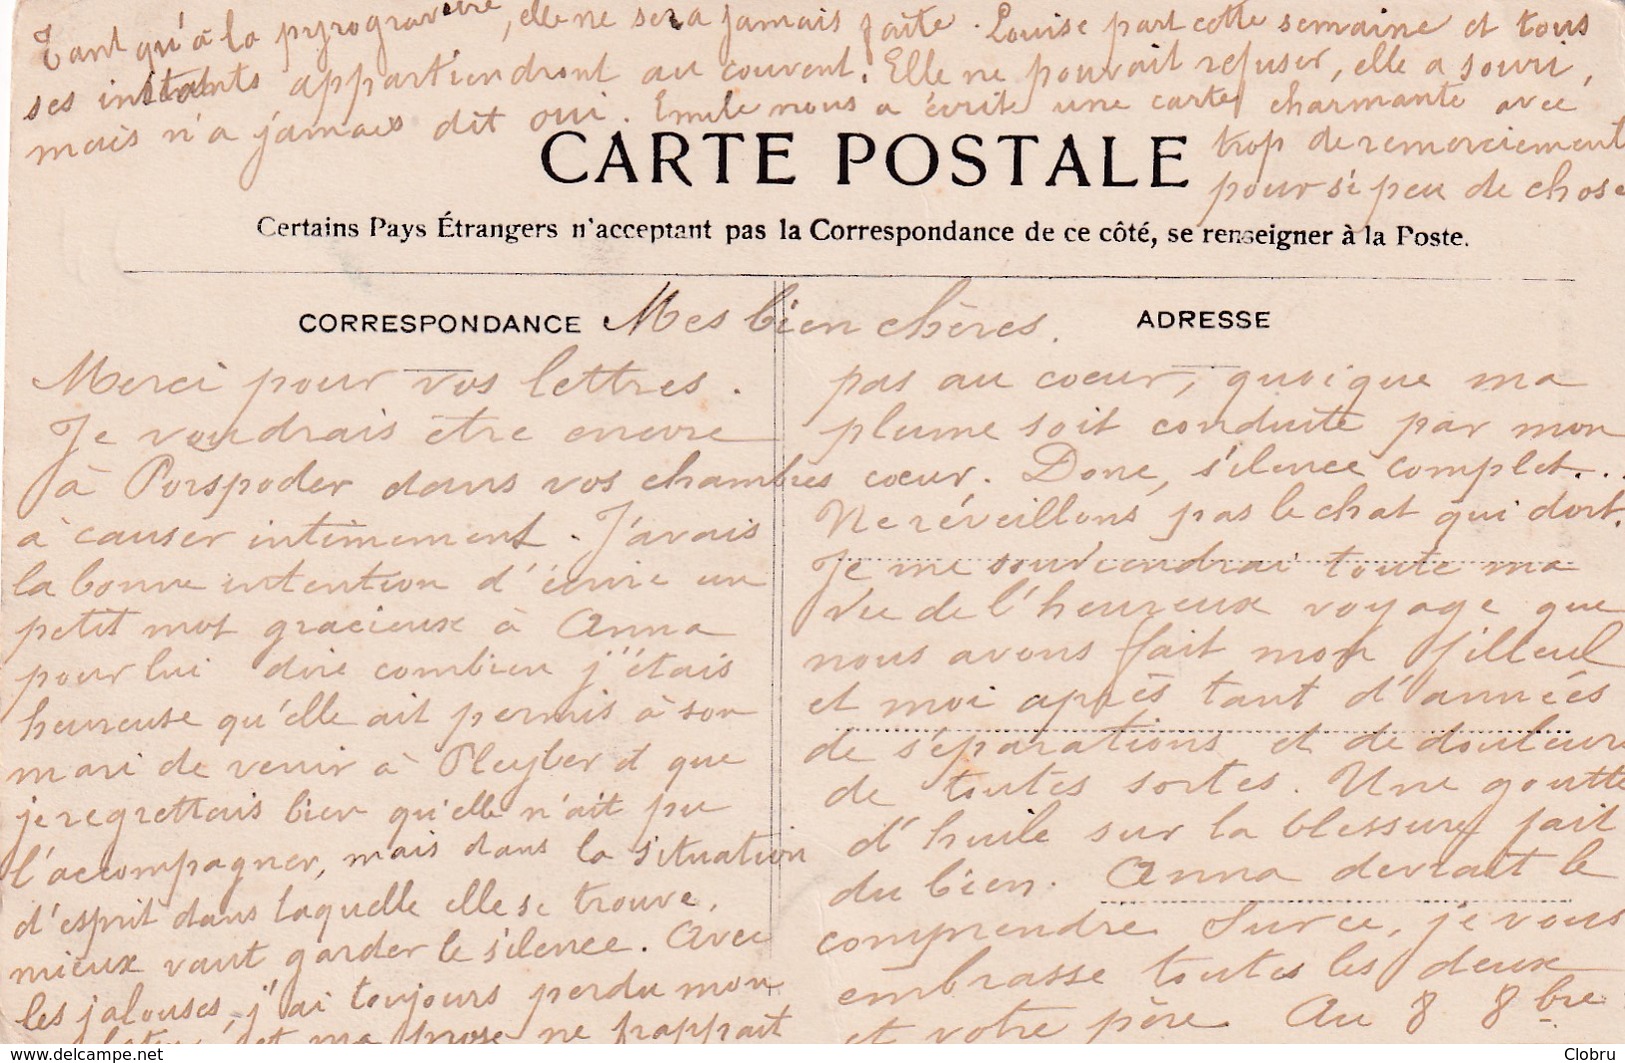 Tant qu'à la pyrogravure, elle ne sera jamais faite. Louise part cette semaine et tous
ses instants appartiendront au couvent. Elle ne pouvait refuser, elle a souri,
mais n'a jamais dit oui. Emile nous a écrit une carte charmante avec
trop de remerciement
pour si peu de chose
CARTE POSTALE
Certains Pays Étrangers n'acceptant pas la Correspondance de ce côté, se renseigner à la Poste.
CORRESPONDANCE
ADRESSE
Mes bien chères.
Merci pour vos lettres.
Je voudrais être encore
à Porspoder dans vos chambres
à causer intimement. J'avais
la bonne intention d'écrire un
petit mot gracieux à Anna
pour lui dire combien j'étais
heureuse qu'elle ait permis à son
mari de venir à Pleyber et que
je regrettais bien qu'elle n'ait pu
l'accompagner, mais dans la situation
d'esprit dans laquelle elle se trouve,
mieux vaut garder le silence. Avec
les jalouses, j'ai toujours perdu mon
latin, et ma prose ne frappait
pas au coeur, quoique ma
plume soit conduite par mon
coeur. Donc, silence complet...
Ne réveillons pas le chat qui dort.
Je me souviendrai toute ma
vie de l'heureux voyage que
nous avons fait mon filleul
et moi après tant d'années
de séparations et de douleurs
de toutes sortes. Une goutte
d'huile sur la blessure fait
du bien. Anna devrait le
comprendre. Sur ce, je vous
embrasse toutes les deux
et votre père. Au 8 8bre
Clobru